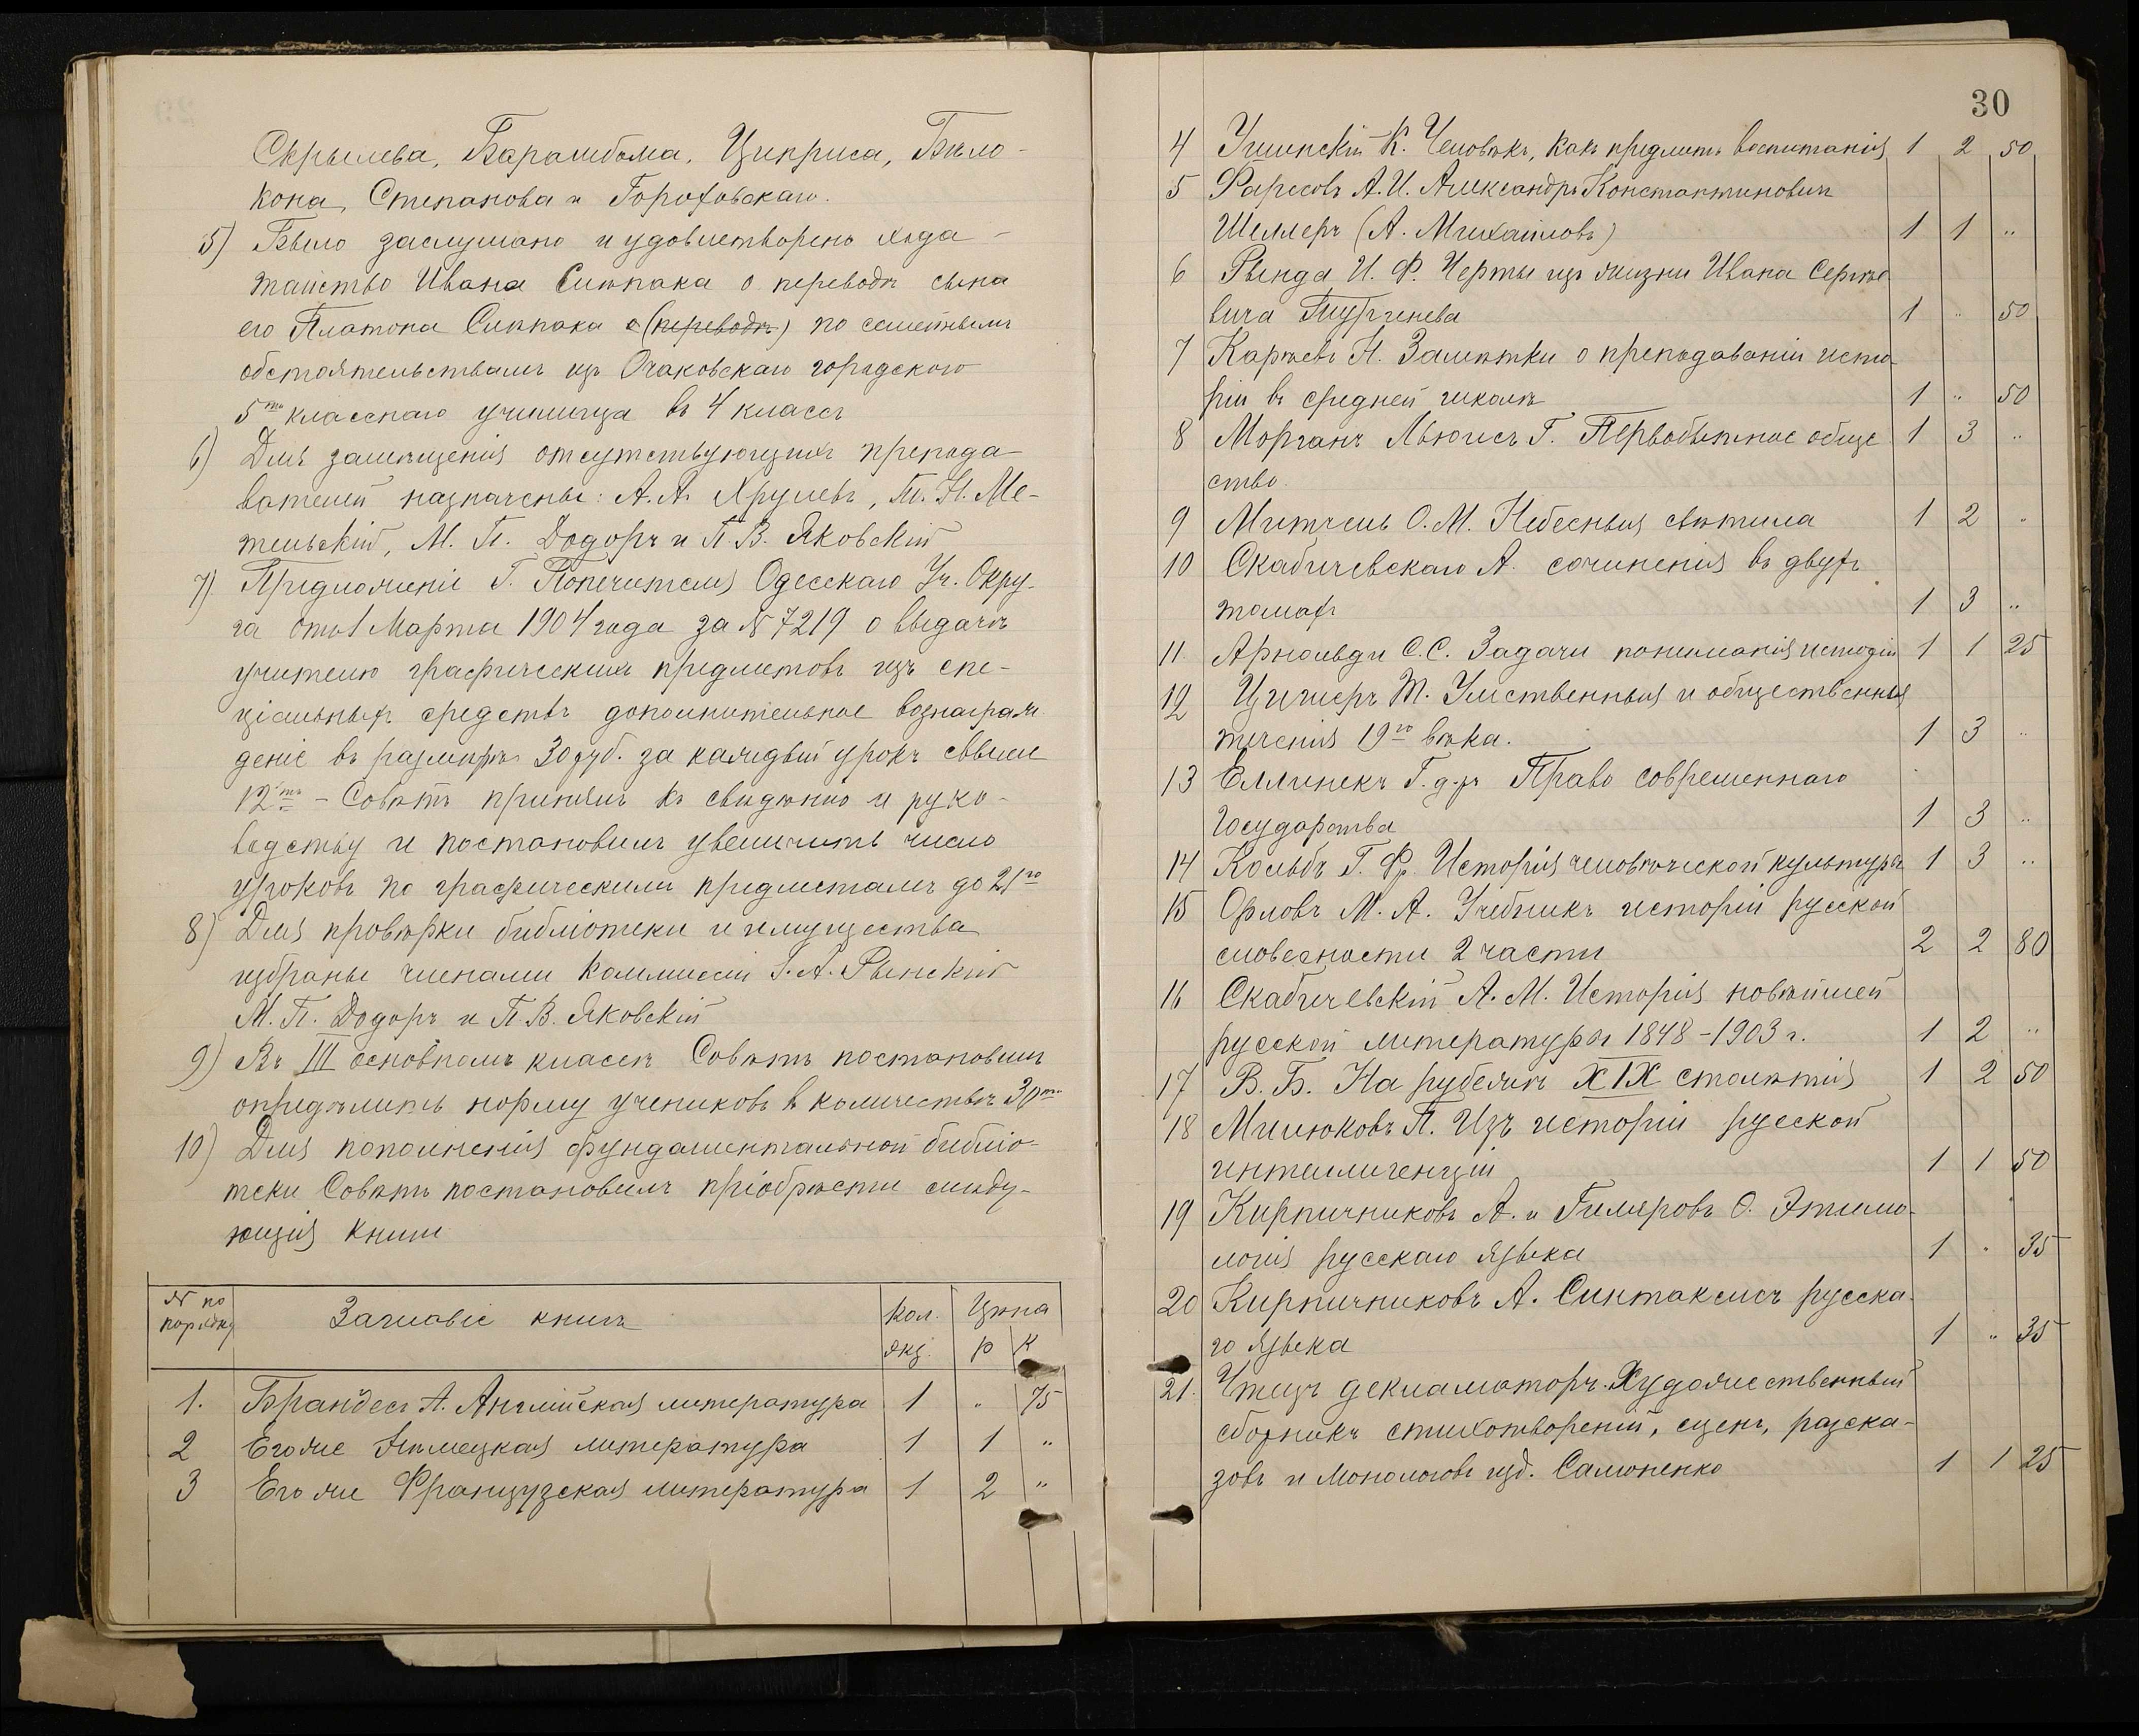 Скрылева, Барамбома, Циприса, Бѣло-
кона, Степанова и Гороховскаго.
5) Было заслушано и удовлетворено хода-
тайство Ивана Синпака о переводѣ сына
его Платона Синпака о (переводѣ) по семейнымъ
обстоятельствамъ изъ Очаковскаго городского
5ти класснаго училища въ 4 классъ
6) Для замѣщенія отсутствующихъ препода-
вателей назначены: А. А. Хрулевъ, Т. Н. Ме-
тельскій, М. П. Додоръ и П. В. Яковскій
7) Предложеніе Г. Попечителя Одесскаго Уч. Окру-
га отъ 1 Марта 1904 года за № 7219 о выдачѣ
учителю графическихъ предметовъ изъ спе-
ціальныхъ средствъ дополнительное вознаграж-
деніе въ размѣрѣ 30 руб. за каждый урокъ свыше
12ти – Совѣтъ принялъ къ свѣдѣнію и руко-
водству и постановилъ увеличить число
уроковъ по графическимъ предметамъ до 21го
8) Для провѣрки библіотеки и имущества
избраны членами коммиссіи Г. А. Рынскій
М. П. Додоръ и П. В. Яковскій
9) Въ III основномъ классѣ Совѣтъ постановилъ
опредѣлить норму учениковъ в количествѣ 30ти
10) Для пополненія фундаментальной библіо-
теки Совѣтъ постановилъ пріобрѣсти слѣду-
ющія книги
№ по порядку Заглавіе книгъ Кол. экз. Цѣна р к
1. Брандесъ А. Англійская литература 1 „ 75
2 Его же Нѣмецкая литература 1 1 „
3 Его же Французская литература 1 2 „
30
4 Ушинскій К. Человѣкъ, какъ предметъ воспитанія 1 2 50
5 Фаресовъ А. И. Александръ Константиновичъ
Шеллеръ (А. Михайловъ) 1 1 „
6 Рында И. Ф. Черты изъ жизни Ивана Сергѣе
вича Тургенева 1 „ 50
7 Карѣевъ Н. Замѣтки о преподаваніи исто-
ріи въ средней школѣ 1 „ 50
8 Морганъ Льюисъ Г. Первобытное обще 1 3 „
ство.
9 Митчель О. М. Небесныя свѣтила 1 2 „
10 Скабичевскаго А. сочиненія въ двухъ
томахъ 1 3 „
11. Арнольди С. С. Задачи пониманія исторіи 1 1 25
12 Циглеръ Т. Умственныя и общественныя
теченія 19го вѣка. 1 3 „
13 Еллинекъ Г. д-ръ Право современнаго
государства 1 3 „
14 Кольбъ Г. Фр. Исторія человѣческой культуры 1 3 „
15 Орловъ М. А. Учебникъ исторіи русской
словесности 2 части 2 2 80
16 Скабичевскій А. М. Исторія новѣйшей
русской литературы 1848-1903 г. 1 2 „
17 В. Б. На рубежѣ XIX столѣтія 1 2 50
18 Милюковъ П. Изъ исторіи русской
интеллигенціи 1 1 50
19 Кирпичниковъ А. и Гиляровъ О. Этимо-
логія русскаго языка 1 „ 35
20 Кирпичниковъ А. Синтаксисъ русска-
го языка 1 „ 35
21. Чтецъ декламаторъ. Художественный
сборникъ стихотвореній, сценъ, разска-
зовъ и монологовъ изд. Самоненко 1 1 25